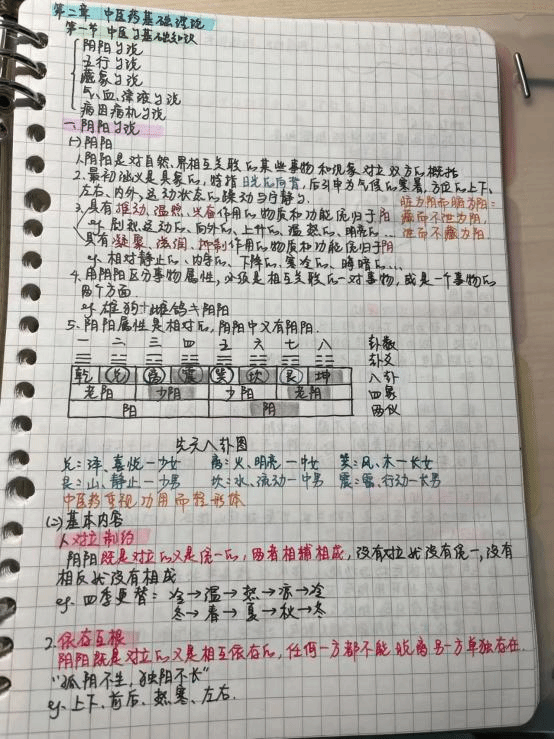 第二章 中医药基础理论
第一节 中医学基础知识
阴阳学说
五行学说
藏象学说
气、血、津液学说
病因病机学说
一、阴阳学说
(一)阴阳
1.阴阳是对自然界相互关联的某些事物和现象对立双方的概括
2.最初涵义是具象的,特指日光的向背,后引申为气候的寒暑,方位的上下、
左右、内外,运动状态的躁动与宁静。
脏为阴而腑为阳:
藏而不泄为阴,
泄而不藏为阳.
3.具有推动、温煦、兴奋作用的物质和功能统归于阳
eg.剧烈、运动的、向外的、上升的、温热的、明亮的…
具有凝聚、滋润、抑制作用的物质和功能统归于阴
eg.相对静止的、内守的、下降的、寒冷的、晦暗的…
4.用阴阳区分事物属性,必须是相互关联的一对事物,或是一个事物的
两个方面.
eg.雄狗+雌鸽≠阴阳
5.阴阳属性是相对的,阴阳中又有阴阳.
一 二 三 四 五 六 七 八 卦数
☰ ☱ ☲ ☳ ☴ ☵ ☶ ☷ 卦爻
乾 兑 离 震 巽 坎 艮 坤 八卦
老阳 少阴 少阳 老阴 四象
阳 阴 两仪
先天八卦图
兑:泽、喜悦—少女 离:火、明亮—中女 巽:风、木—长女
艮:山、静止—少男 坎:水、流动—中男 震:雷、行动—长男
中医药重视功用而轻形体
(二)基本内容
1.对立制约
阴阳既是对立的又是统一的,两者相辅相成,没有对立就没有统一,没有
相反就没有相成
eg.四季更替:冷→温→热→凉→冷
冬→春→夏→秋→冬
2.依存互根
阴阳既是对立的又是相互依存的,任何一方都不能脱离另一方单独存在.
“孤阴不生,独阳不长”
eg.上下、前后、热寒、左右.